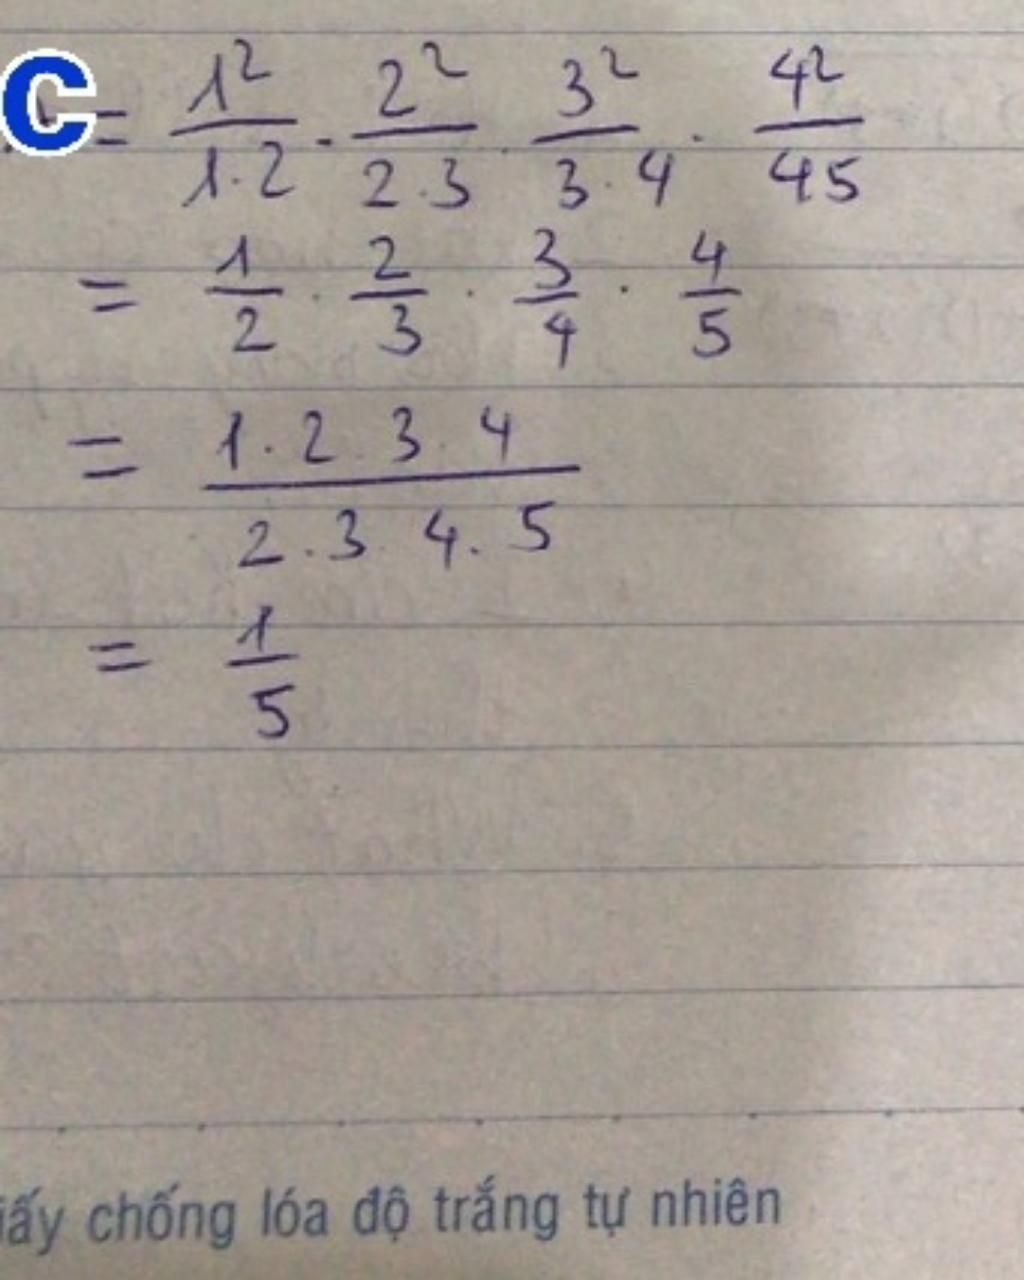 C = 1²/1.2 . 2²/2.3 . 3²/3.4 . 4²/45
= 1/2 . 2/3 . 3/4 . 4/5
= 1.2 3.4/2.3 4.5
= 1/5
iấy chống lóa độ trắng tự nhiên